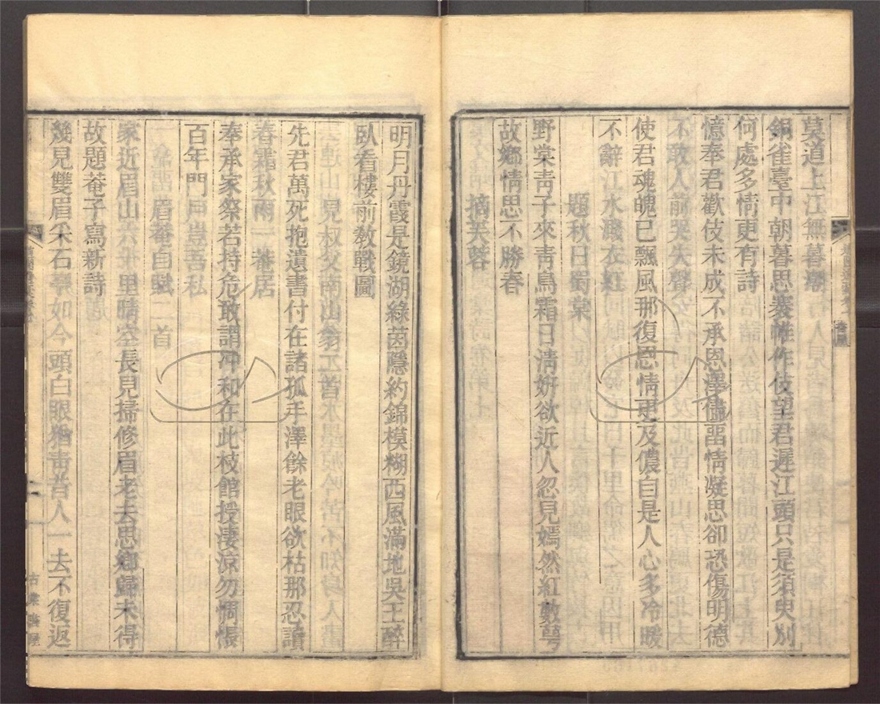 莫道上江無暮潮
銅雀臺中朝暮思褰帷作伎望君遲江頭只是須臾別
何處多情更有詩
憶奉君歡伎未成不承恩澤儘畱情凝思卻恐傷明德
不敢人前哭失聲
使君魂魄已飄風那復恩情更及儂自是人心多冷暖
不辭江水濺衣紅
題秋日蜀棠
野棠靑子來靑鳥霜日淸姸欲近人忽見嫣然紅數萼
故鄉情思不勝春
摘芙蓉
明月丹霞是鏡湖綠茵隱約錦模糊西風滿地吳王醉
臥看樓前敎戰圖
先君萬死抱遺書付在諸孤手澤餘老眼欲枯那忍讀
春霜秋雨一菴居
奉承家祭若持危敢謂冲和在此枝館授淒涼勿惆悵
百年門戶豈吾私
眉菴自賦二首
家近眉山六十里晴空長見掃修眉老去思鄉歸未得
故題菴子寫新詩
幾見雙眉采石尋如今頭白眼猶靑昔人一去不復返